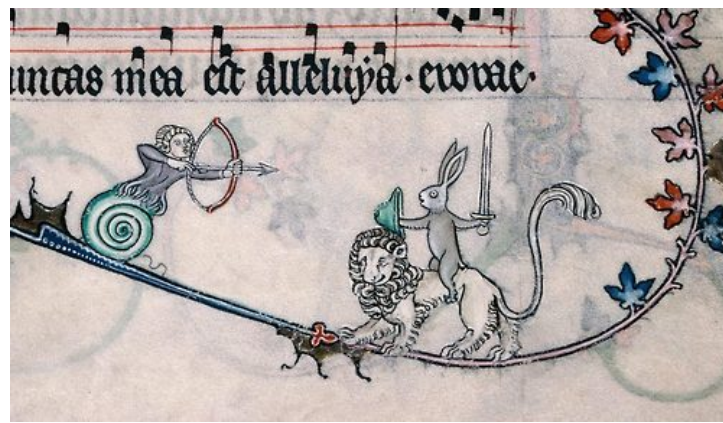 untas mea est alleluÿa · evovae ·